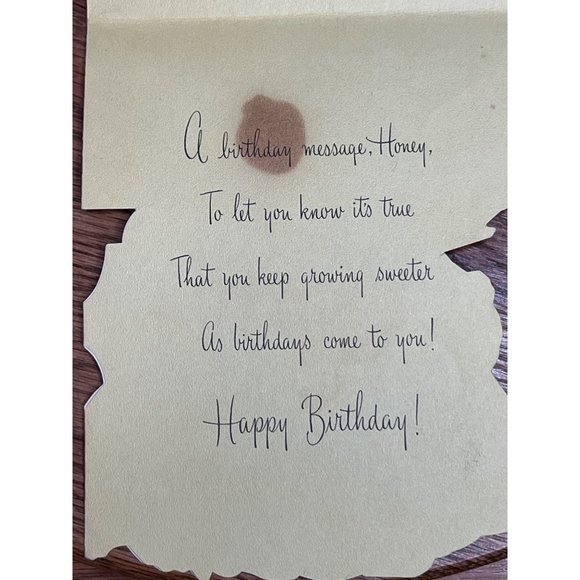 A birthday message, Honey,
To let you know it's true
That you keep growing sweeter
As birthdays come to you!
Happy Birthday!